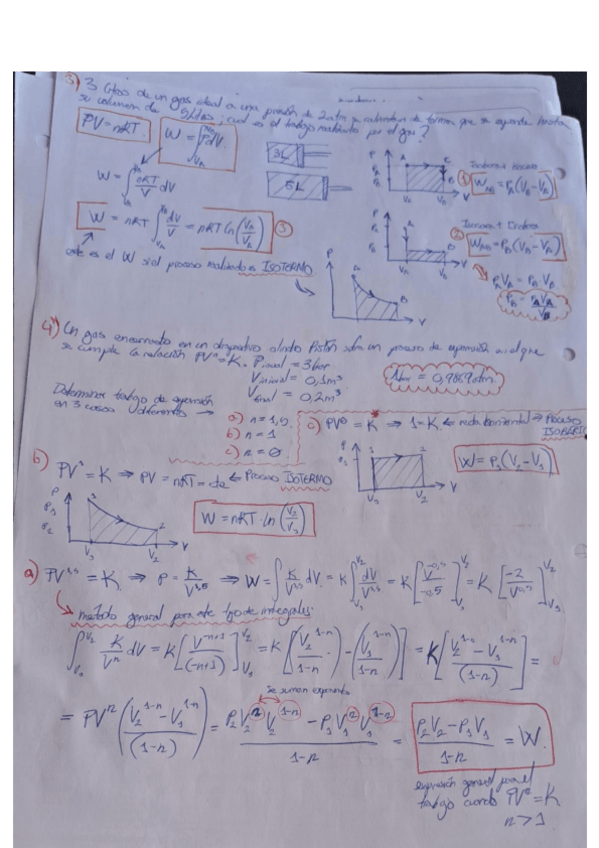 3) 3 litros de un gas ideal a una presión de 2 atm se calientan de forma que se expande hasta
su volumen de 5 litros, ¿cuál es el trabajo realizado por el gas?
PV = nRT.
W = ∫ PdV.
W = ∫ nRT/V dV
3L
5L
W = nRT ∫ dV/V = nRT ln(V_B/V_A) ③
este es el W si el proceso realizado es ISOTERMO
① W_AB = P_A(V_B - V_A)
② W_AB = P_B(V_B - V_A)
P_A V_A = P_B V_B
P_B = P_A V_A / V_B
4) Un gas encerrado en un dispositivo cilindro Pistón sufre un proceso de expansión en el que
se cumple la relación PVⁿ = K. P inicial = 3 bar
V inicial = 0,1 m³
V final = 0,2 m³
1 bar = 0,9869 atm
Determinar trabajo de expansión
en 3 casos diferentes →
a) n = 1,5.
b) n = 1
c) n = 0
c) PV⁰ = K → 1 = K. ← recta horizontal → Proceso
ISOBÁRICO
W = P₁(V₂ - V₁)
b) PV¹ = K ⇒ PV = nRT = cte ← Proceso ISOTERMO
W = nRT · ln(V₂/V₁)
a) PV^1,5 = K. ⇒ P = K/V^1,5 ⇒ W = ∫ K/V^1,5 dV. = K ∫_V₁^V₂ dV/V^1,5 = K [V^-0,5/-0,5]_V₁^V₂ = K [-2/V^0,5]_V₁^V₂
método general para este tipo de integrales:
∫_V₁^V₂ K/Vⁿ dV = K [V^-n+1/(-n+1)]_V₁^V₂ = K [(V₂^1-n/1-n) - (V₁^1-n/1-n)] = K [V₂^1-n - V₁^1-n/(1-n)] =
se suman exponentes
= PVⁿ (V₂^1-n - V₁^1-n/(1-n)) = P₂V₂ⁿV₂^1-n - P₁V₁ⁿV₁^1-n / 1-n = P₂V₂ - P₁V₁ / 1-n = W.
expresión general para el
trabajo cuando PVⁿ = K
n > 1